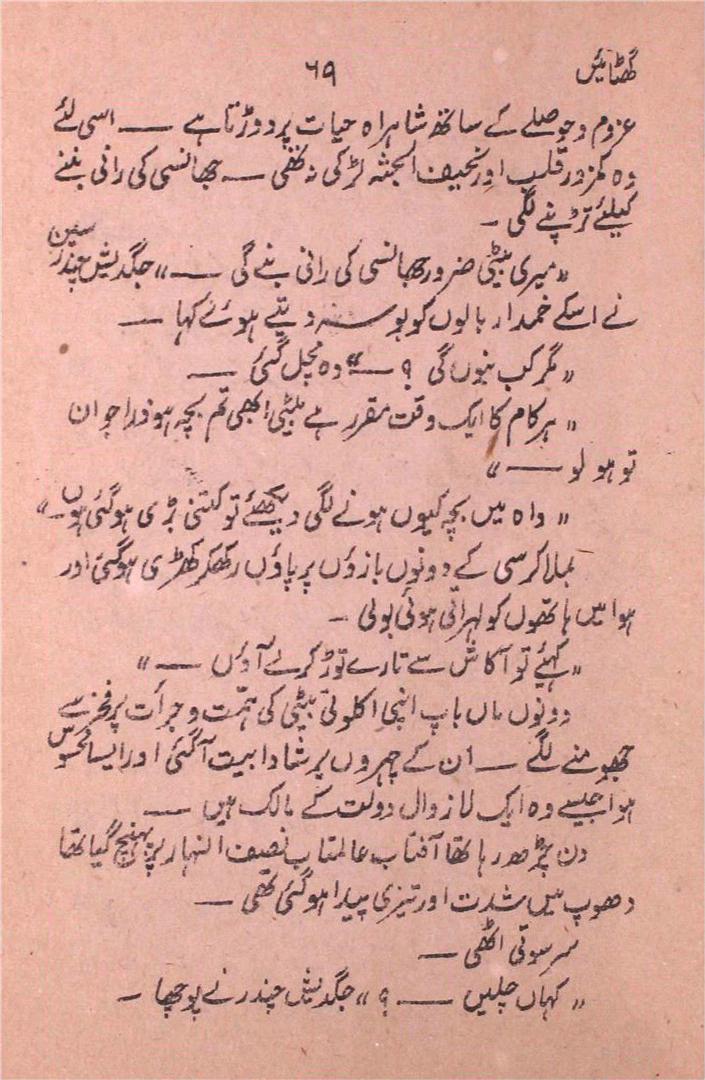 گھٹائیں
۶۹
عزوم و حوصلے کے ساتھ شاہراہ حیات پر دوڑتا ہے — اسی لئے
وہ کمزور قلب اور نحیف الجثہ لڑکی نہ تھی — جھانسی کی رانی بننے
کیلئے تڑپنے لگی —
”میری بیٹی ضرور جھانسی کی رانی بنے گی —“ جگدیش چندر سین
نے اسکے خمدار بالوں کو بوسہ دیتے ہوئے کہا —
”مگر کب بنوں گی ؟ —“ وہ مچل گئی —
”ہر کام کا ایک وقت مقرر ہے بیٹی ابھی تم بچہ ہو ذرا جوان
تو ہو لو —“
”واہ میں بچہ کیوں ہونے لگی دیکھئے تو کتنی بڑی ہو گئی ہوں —“
بملا کرسی کے دونوں بازوؤں پر پاؤں رکھکر کھڑی ہو گئی اور
ہوا میں ہاتھوں کو لہراتی ہوئی بولی —
”کہئے تو آکاش سے تارے توڑ کر لے آؤں —“
دونوں ماں باپ اپنی اکلوتی بیٹی کی ہمت و جرأت پر فخر سے
جھومنے لگے — ان کے چہروں پر شادابیت آگئی اور ایسا محسوس
ہوا جیسے وہ ایک لازوال دولت کے مالک ہیں —
دن چڑھ رہا تھا آفتاب عالمتاب نصف النہار پر پہنچ گیا تھا
دھوپ میں شدت اور تیزی پیدا ہو گئی تھی —
سرسوتی اٹھی —
”کہاں چلیں — ؟“ جگدیش چندر نے پوچھا —